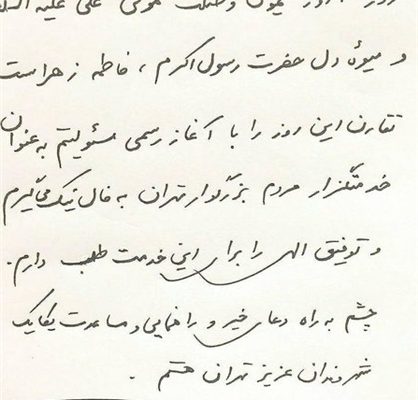 روز میلاد علی علیه السلا
و میوهٔ دل حضرت رسول اکرم ، فاطمه زهراست
تقارن این روز را با آغاز رسمی مسئولیتم به عنوان
خدمتگزار مردم بزرگوار تهران به فال نیک می‌گیرم
و توفیق الهی را برای این خدمت طلب دارم.
چشم به راه دعای خیر و راهنمایی و مساعدت یکایک
شهروندان عزیز تهران هستم .